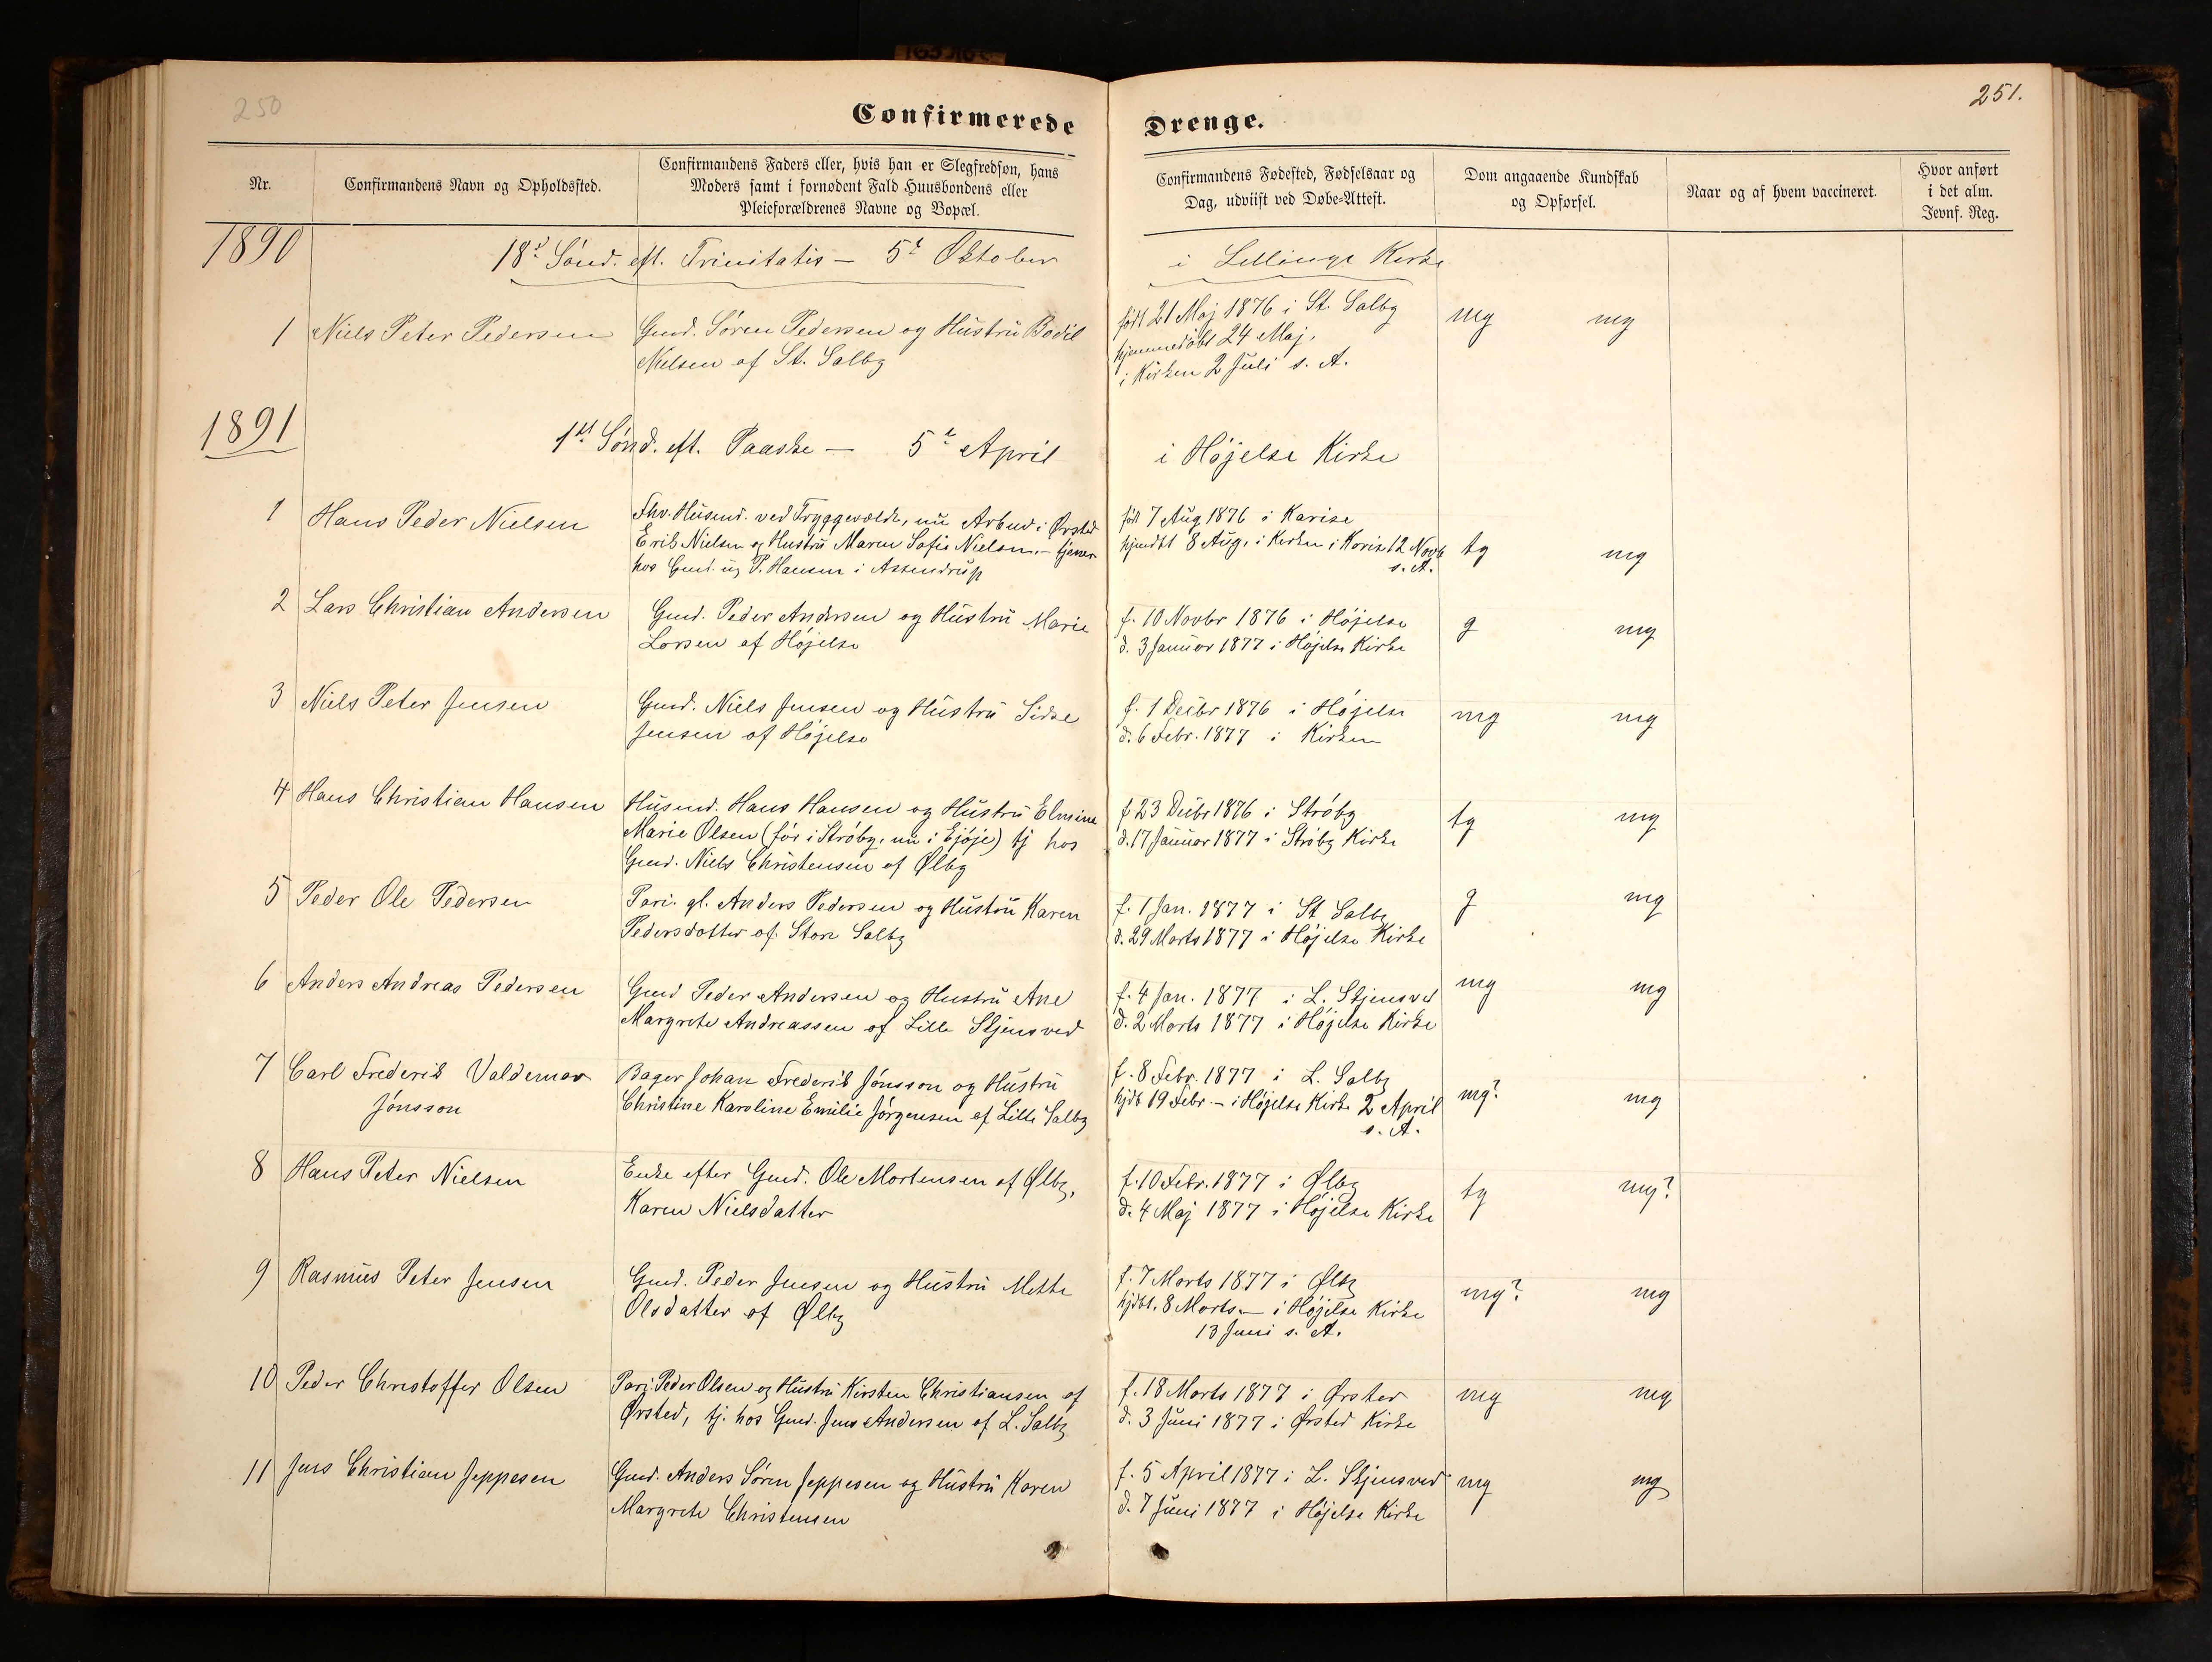 250
251.
Confirmerede Drenge.
Nr.
Confirmandens Navn og Opholdssted.
Confirmandens Faders eller, hvis han er Slegfredsøn, hans
Moders samt i fornødent Fald Huusbondens eller
Pleieforældrenes Navne og Bopæl.
Confirmandens Fødested, Fødselsaar og
Dag, udviist ved Døbe-Attest.
Dom angaaende Kundskab
og Opførsel.
Naar og af hvem vaccineret.
Hvor anført
i det alm.
Jevnf. Reg.
1890
18d Sönd. eft. Trinitatis — 5t Oktober
i Lellinge Kirke
1
Niels Peter Pedersen
Gmd. Søren Pedersen og Hustrü Bodil
Nielsen af St. Salby
født 21 Maj 1876 i St. Salby
hjemmedöbt 24 Maj,
i Kirken 2 Juli s. A.
mg
mg
1891
1st Sönd. eft. Paaske — 5t April
i Höjelse Kirke
1
Hans Peder Nielsen
Fhv. Hüsmd. ved Tryggevælde, nü Arbmd. i Ørsted
Erik Nielsen og Hustrü Maren Sofie Nielsen. — tjener
hos Gmd. P. Hansen i Assendrüp
født 7 Aüg 1876 i Karise
hjmdbt 8 Aüg. i Kirken i Karise 12 Novb
s. A.
tg
mg
2
Lars Christian Andersen
Gmd. Peder Andersen og Hüstrü Marie
Larsen af Höjelse
f. 10 Novbr 1876 i Höjelse
d. 3 Janüar 1877 i Höjelse Kirke
g
mg
3
Niels Peter Jensen
Gmd. Niels Jensen og Hüstrü Sidse
Jensen af Höjelse
f. 1 Decbr 1876 i Höjelse
d. 6 Febr. 1877 i Kirken
mg
mg
4
Hans Christian Hansen
Hüsmd. Hans Hansen og Hüstrü Elmine
Marie Olsen (för i Ströby, nü i Ejöje) tj hos
Gmd. Niels Christensen af Ølby
f 23 Decbr 1876 i Ströby
d. 17 Janüar 1877 i Ströby Kirke
tg
mg
5
Peder Ole Pedersen
Pari. gl. Anders Pedersen og Hüstrü Karen
Pedersdatter af Store Salby
f. 1 Jan. 1877 i St Salby
d. 29 Marts 1877 i Höjelse Kirke
g
mg
6
Anders Andreas Pedersen
Gmd Peder Andersen og Hustrü Ane
Margrete Andreassen af Lille Skjensved
f. 4 Jan. 1877 i L. Skjensved
d. 2 Marts 1877 i Höjelse Kirke
mg
mg
7
Carl Frederik Valdemar
Jönsson
Bager Johan Frederik Jönsson og Hüstrü
Christine Karoline Emilie Jörgensen af Lille Salby
f. 8 Febr. 1877 i L. Salby
hjdb 19 Febr. — i Höjelse Kirke 2 April
s. A.
mg?
mg
8
Hans Peter Nielsen
Enke efter Gmd. Ole Mortensen af Ølby,
Karen Nielsdatter
f. 10 Febr. 1877 i Ølby
d. 4 Maj 1877 i Höjelse Kirke
tg
mg?
9
Rasmüs Peter Jensen
Gmd. Peder Jensen og Hüstrü Mette
Olsdatter af Ølby
f. 7 Marts 1877 i Ølby
hjdbt. 8 Marts. — i Höjelse Kirke
13 Juni s. A.
mg?
mg
10
Peder Christoffer Olsen
Pari Peder Olsen og Hüstrü Kirsten Christiansen af
Ørsted, tj. hos Gmd. Jens Andersen af L. Salby
f. 18 Marts 1877 i Ørsted
d. 3 Jüni 1877 i Ørsted Kirke
mg
mg
11
Jens Christian Jeppesen
Gmd. Anders Sören Jeppesen og Hüstrü Karen
Margrete Christensen
f. 5 April 1877 i L. Skjensved
d. 7 Jüni 1877 i Höjelse Kirke
mg
mg